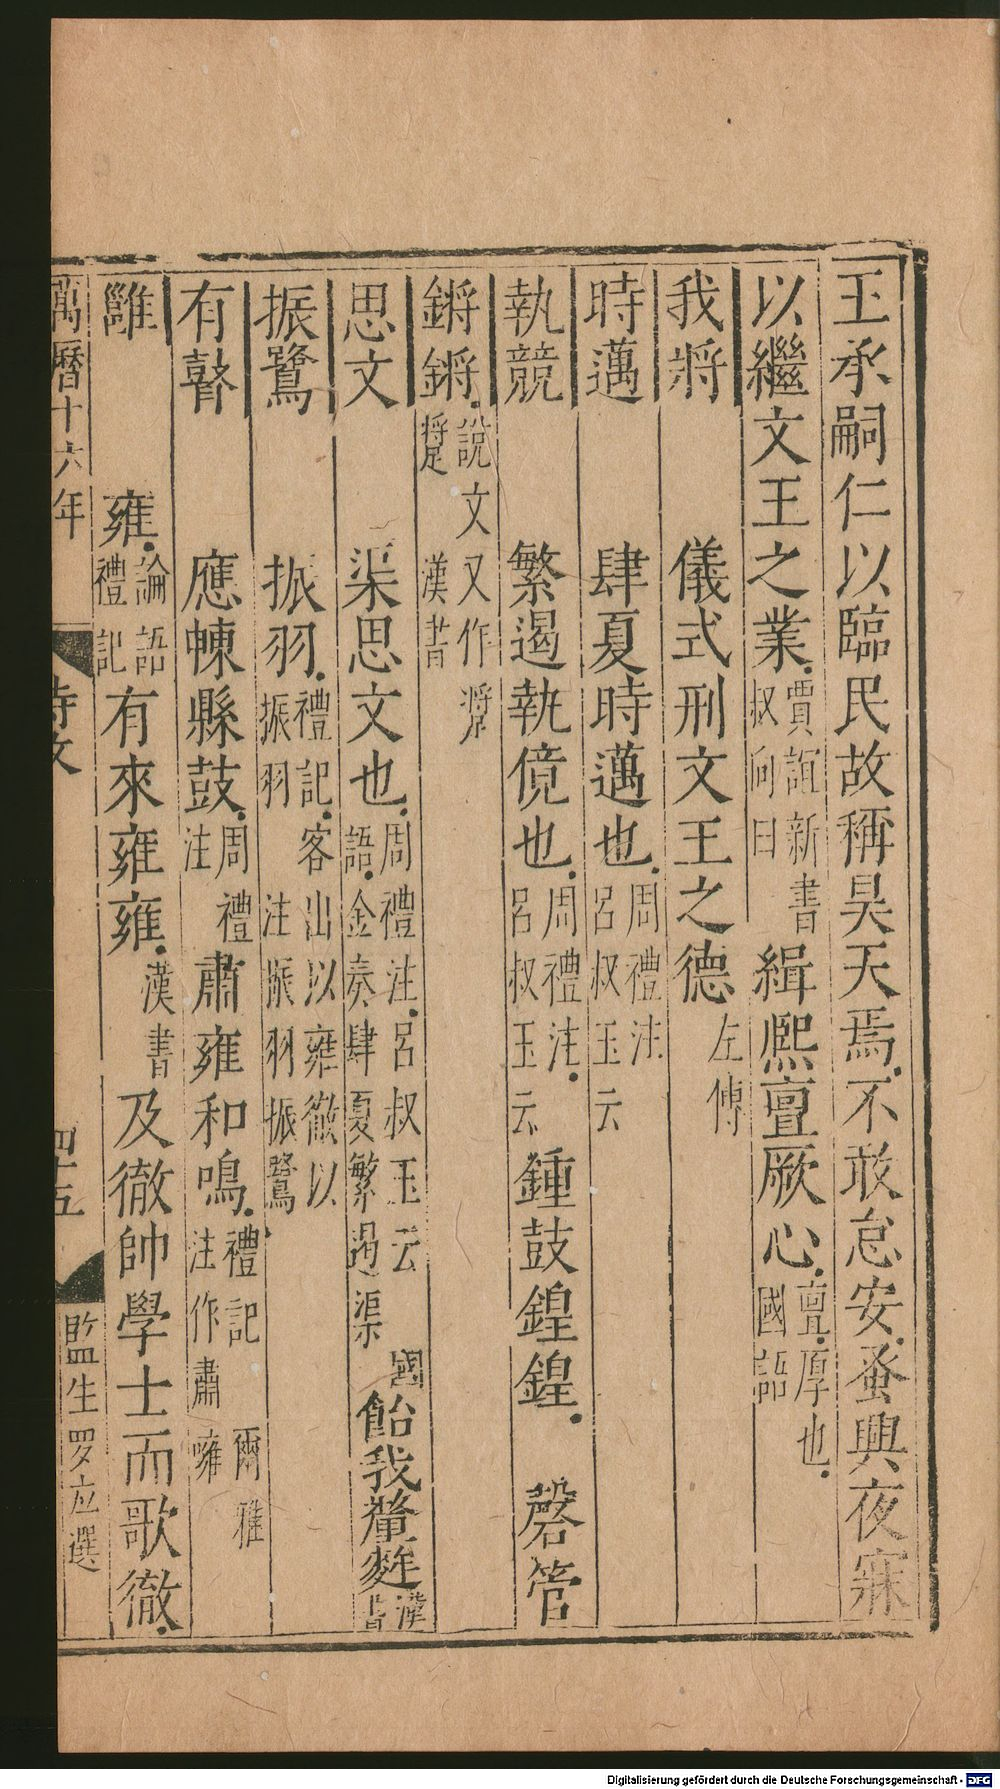 王承嗣仁以臨民故稱昊天焉不敢怠安蚤興夜寐
以繼文王之業賈誼新書叔向曰緝熙亶厥心亶厚也國語
我將儀式刑文王之德左傳
時邁肆夏時邁也周禮注呂叔玉云
執競繁遏執傹也周禮注呂叔玉云鍾鼓鍠鍠磬管
鏘鏘說文又作漢書
思文渠思文也周禮注呂叔玉云國語金奏肆夏繁遏渠飴我釐麰漢書
振鷺振羽禮記客出以雍徹以振羽注振羽振鷺
有瞽應朄縣鼓周禮注肅雍和鳴禮記注作肅爾雅噰
雝雍論語禮記有來雍雍漢書及徹帥學士而歌徹
萬曆十六年 詩攷 四十五 監生罗应選
Digitalisierung gefördert durch die Deutsche Forschungsgemeinschaft - DFG